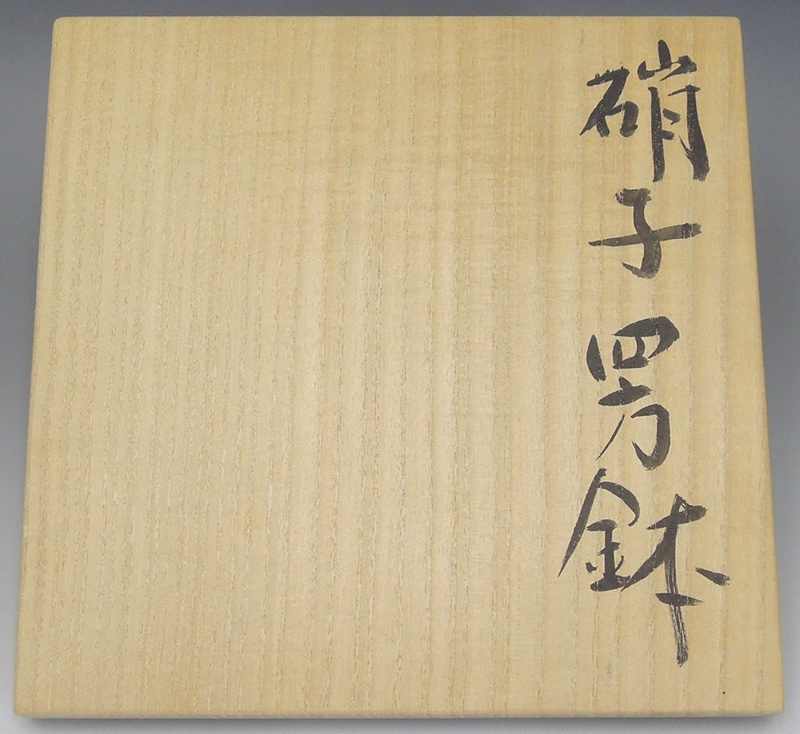 硝子四方鉢